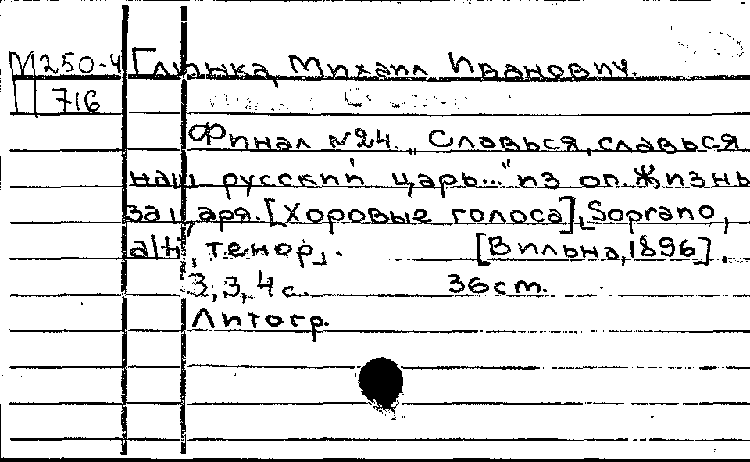 М250-4 Глинка, Михаил Иванович.
П 716
Финал №24. „Славься, славься
наш русский царь..." из оп. Жизнь
за царя. [Хоровые голоса], [Soprano,
alti, тенор]. [Вильна, 1896].
3, 3, 4 с. 36 cm.
Литогр.